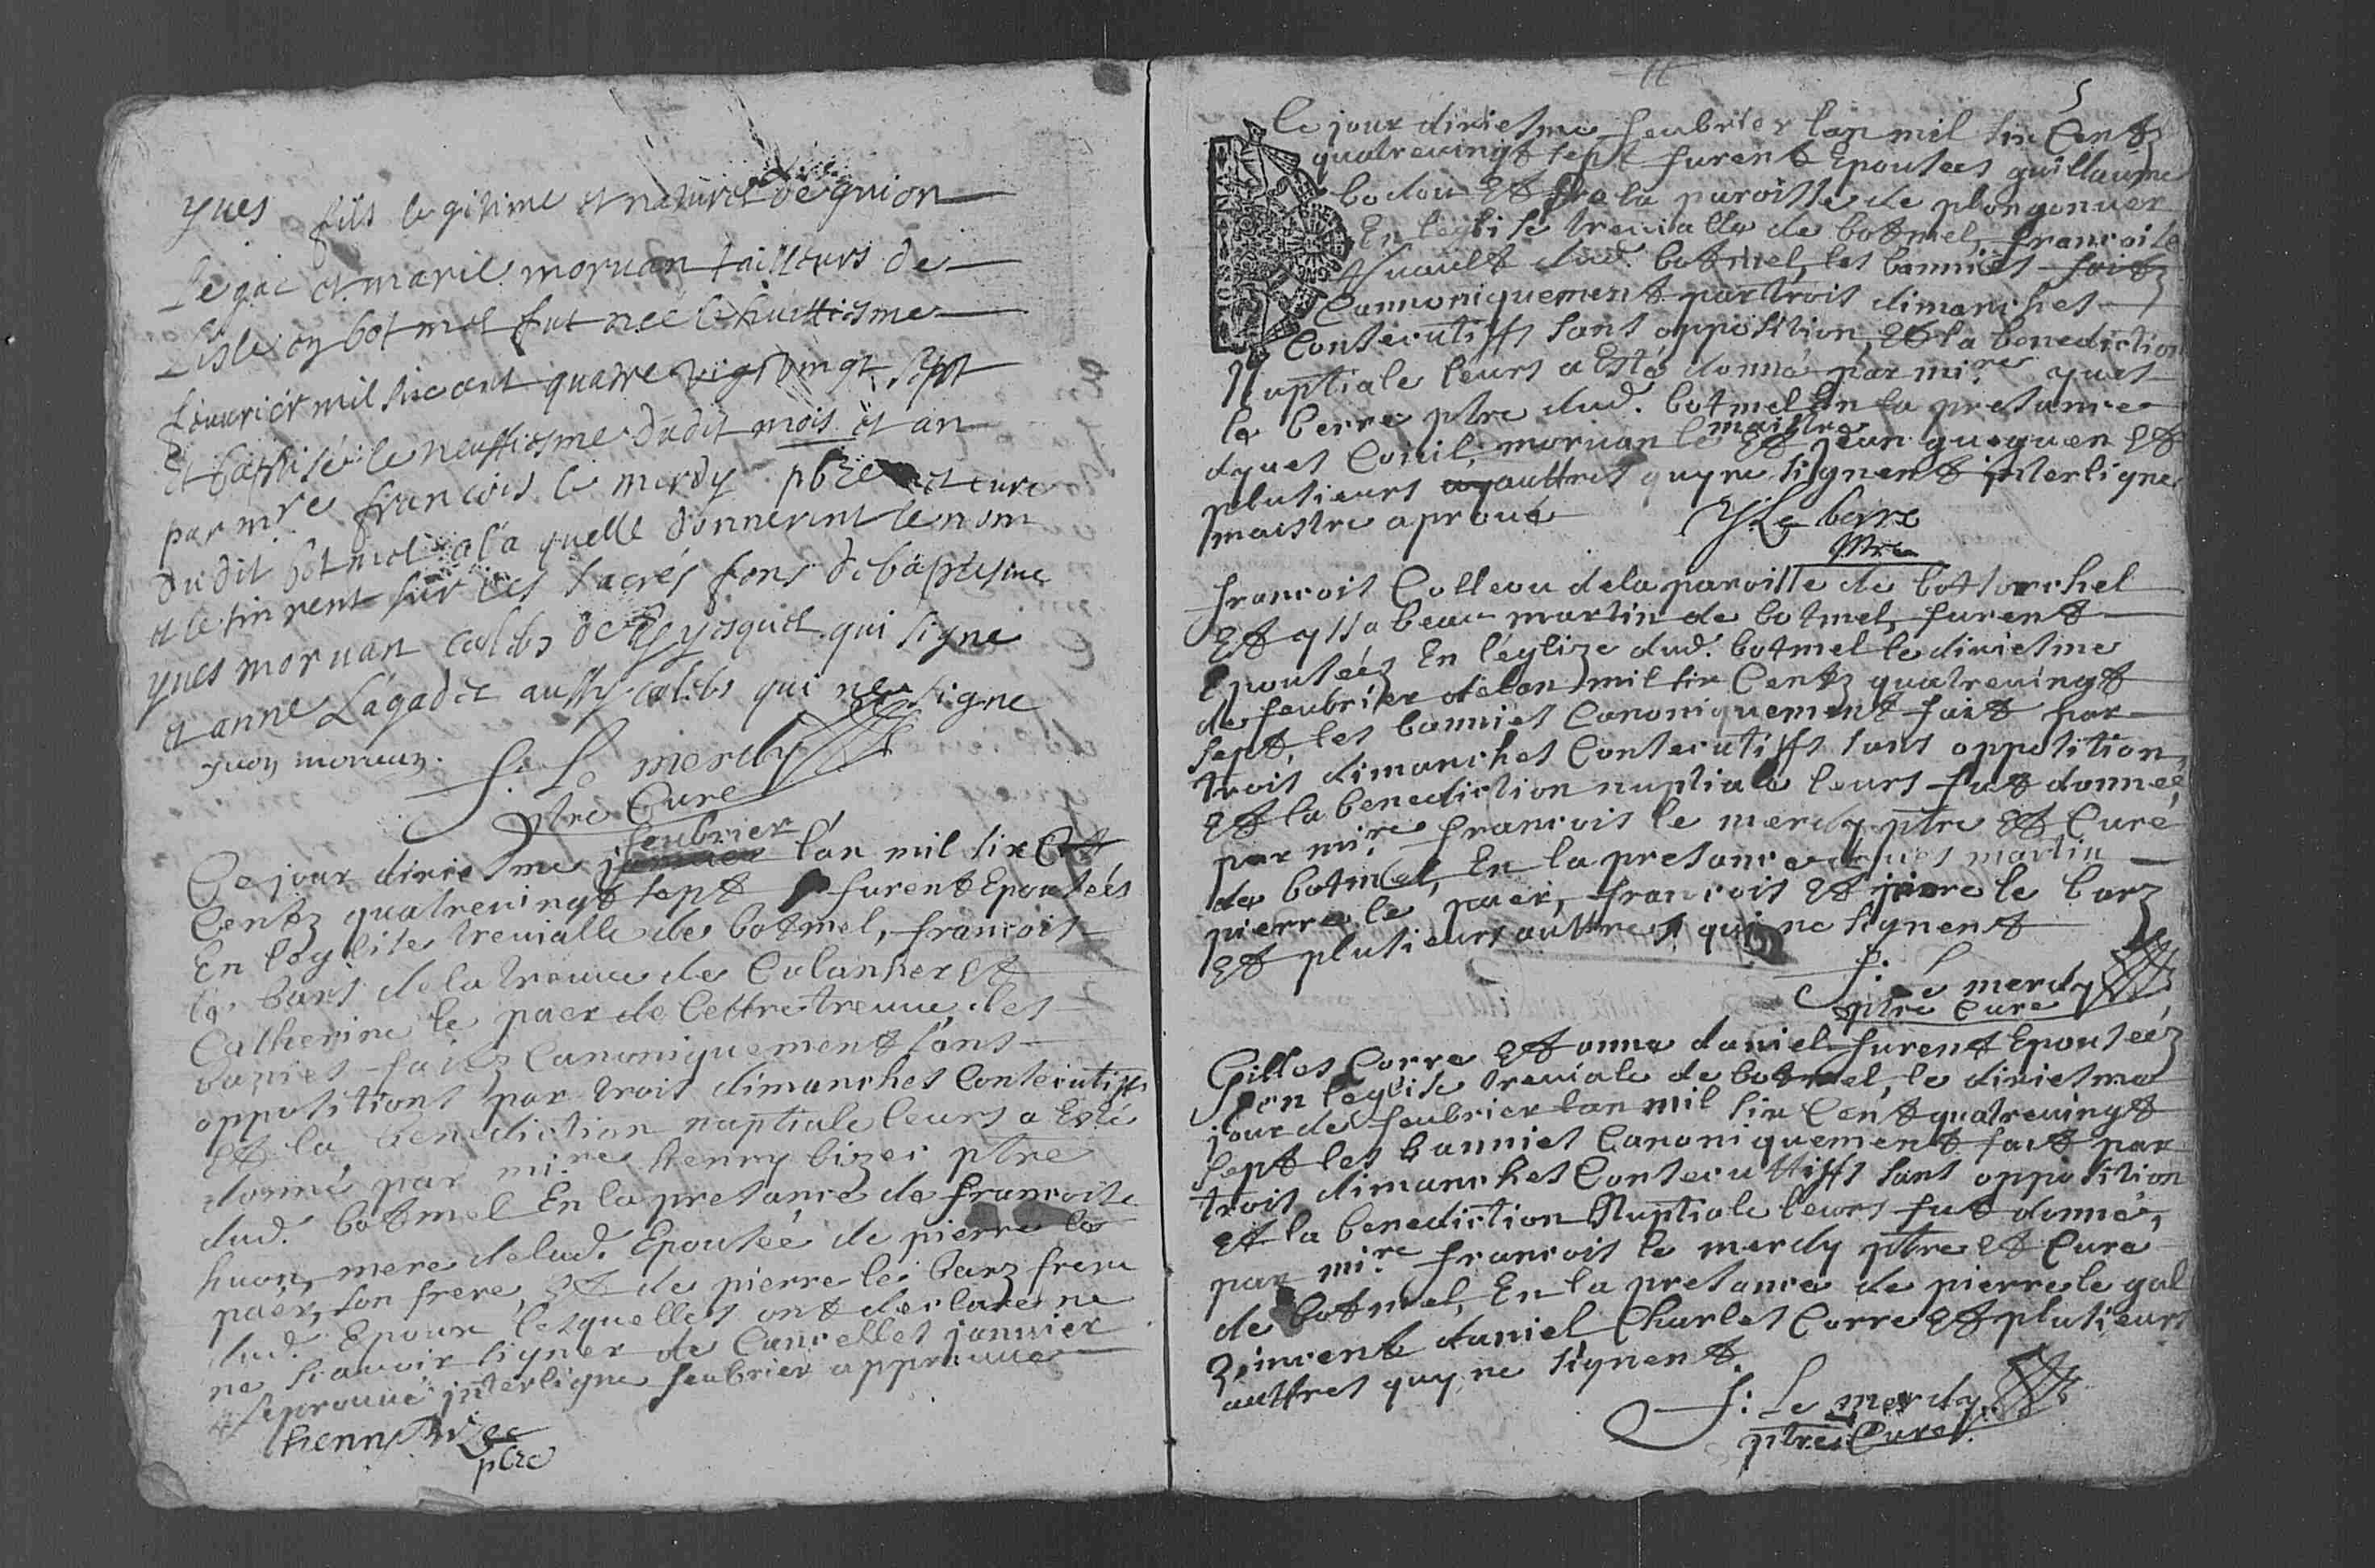 yues fils legitime et naturel de guion
Le gac et marie moruan tailleurs de
Lisle en botmel fut neé le huittiesme
feuurier mil six cent quatre vingt sept
et baptisée le neuffiesme dudit mois et an
par mre francois le merdy pbre et cure
du dit botmel a la quelle donnerent le nom
et le tinrent sur les sacrés fons de baptesme
yues moruan calibs de qui signe
et anne Lagadec aussy calibs qui ne signe
yuon moruan.
f: Le merdy
ptre Cure
feubrier
Ce jour diziesme januier l'an mil six Ct
Centz quatreuingt sept furent Epouseés
En l'eglise treuialle de botmel, francois
le bars de la treuue de Calanhel Et
Catherine le paer de Cettre treuue, les
banies faitz Canoniquement sans
oppositions par trois dimanches Consecutiffs
Et la benediction nuptiale leurs a Esté
donné par mi.re henry bizec ptre
dud. botmel En la presance de francoise
huon, mere de lad. Epouseé, de pierre le
paer, son frere, Et de pierre le barz frere
dud. Epoux lesquelles ont declare ne
ne scauoir signer de Cancelles januier
reprouué interligne feubrier approuue
henry Bizec
pbre
5
Ce jour diziesme feubrier l'an mil six Centz
quatreuingt sept furent Epousees guillaume
bodou de la paroisse de plougonuer
En leglise treuialle de botmel, francoise
dud. botmel, les bannies faitz
Cannoniquement par trois dimanches
Consecutiffs sans opposition, Et la benediction
Nuptiale leurs a Esté donné par mi.re yues
le berre ptre dud. botmel En la presance
maistre
dyues Couil, moruan le Et Jean gueguen Et
plusieurs auttres quy ne signent interligne
maistre aproué
Y: Le berre
ptre
francois Colleou de la paroisse de bottorchel
Et yssabeau martin de botmel, furent
Epouseéz En l'eglize dud. botmel le diziesme
de feubrier de lan mil six Centz quatreuingt
sept, les bannies Canoniquement fait par
trois dimanches Consecutiffs sans opposition,
Et la benediction nuptiale leurs fut donneé
par mi.re francois le merdy ptre Et Cure
de botmel, En la presance dyues martin
pierre le paer, francois Et pierre le barz
Et plusieurs auttres qui ne signent
f: Le merdy
ptre Cure
Gilles Corre Et anne daniel furent Epouseéz
en l'eglise treuiale de botmel, le diziesme
jour de feubrier lan mil six Cent quatreuingt
sept les bannies Canoniquement fait par
trois dimanches Consecuttiffs sans opposition
et la benediction Nuptiale leurs fut donné,
par mi.re francois le merdy ptre Et Cure
de botmel, En la presance de pierre le gal
vincent daniel Charles Corre Et plusieurs
auttres quy ne signent
f: Le merdy
ptre Cure